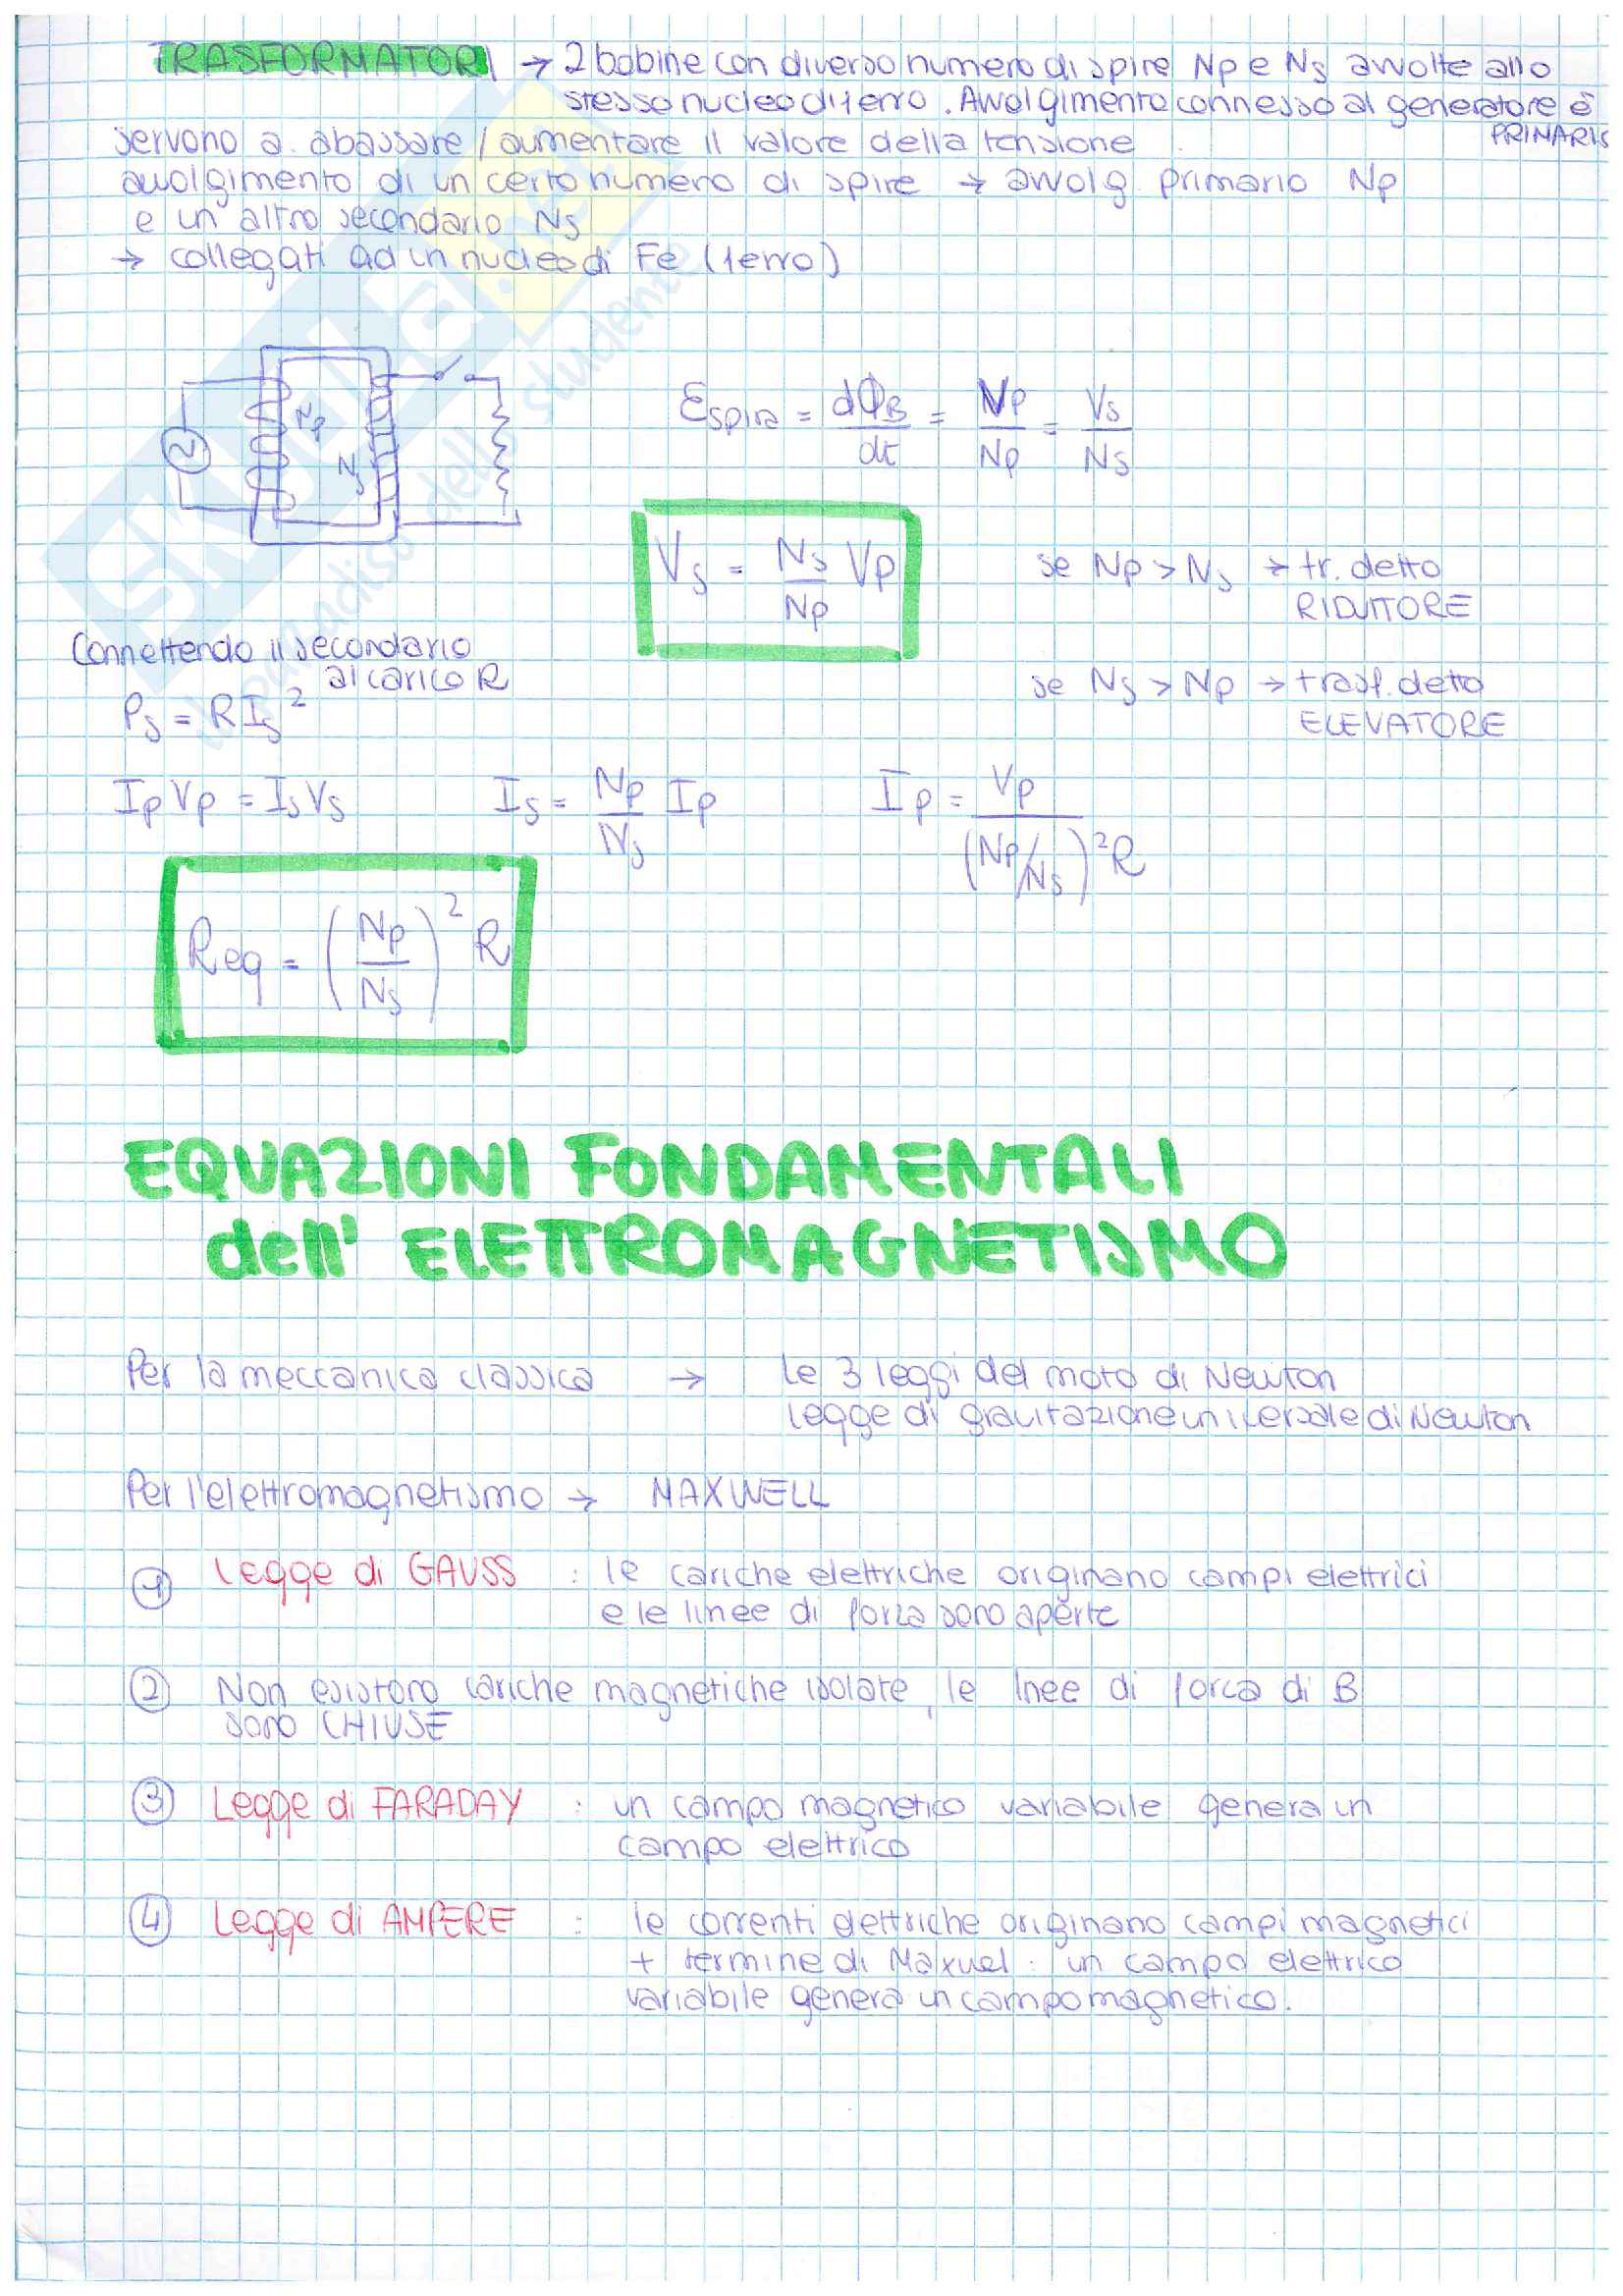 TRASFORMATORI → 2 bobine con diverso numero di spire Np e Ns avvolte allo
stesso nucleo di ferro. Avvolgimento connesso al generatore è
PRIMARIO
servono a abassare / aumentare il valore della tensione
avvolgimento di un certo numero di spire → avvolg. primario Np
e un altro secondario Ns
→ collegati ad un nucleo di Fe (ferro)
Np
Ns
Espira = dΦB/dt = Vp/Np = Vs/Ns
Vs = Ns/Np Vp
se Np > Ns → tr. detto
RIDUTTORE
Connettendo il secondario
al carico R
se Ns > Np → trasf. detto
ELEVATORE
Ps = R Is²
Ip Vp = Is Vs
Is = Np/Ns Ip
Ip = Vp/(Np/Ns)² R
Req = (Np/Ns)² R
EQUAZIONI FONDAMENTALI
dell' ELETTROMAGNETISMO
Per la meccanica classica → le 3 leggi del moto di Newton
legge di gravitazione universale di Newton
Per l'elettromagnetismo → MAXWELL
① Legge di GAUSS : le cariche elettriche originano campi elettrici
e le linee di forza sono aperte
② Non esistono cariche magnetiche isolate, le linee di forca di B
sono CHIUSE
③ Legge di FARADAY : un campo magnetico variabile genera un
campo elettrico
④ Legge di AMPERE : le correnti elettriche originano campi magnetici
+ termine di Maxuel : un campo elettrico
variabile genera un campo magnetico.
SKUOLA.net
il paradiso dello studente